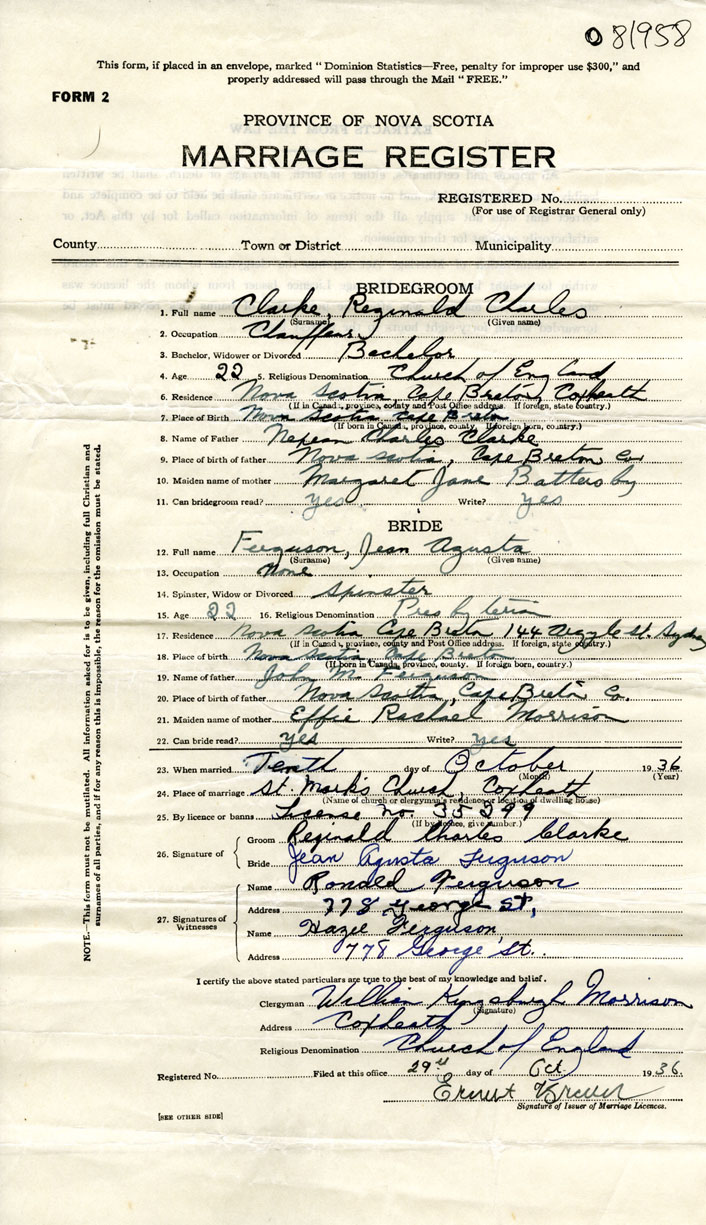 081958
This form, if placed in an envelope, marked "Dominion Statistics—Free, penalty for improper use $300," and
properly addressed will pass through the Mail "FREE."
FORM 2
PROVINCE OF NOVA SCOTIA
MARRIAGE REGISTER
REGISTERED No.
(For use of Registrar General only)
County Town or District Municipality
BRIDEGROOM
1. Full name Clarke, Reginald Charles
(Surname) (Given name)
2. Occupation Chauffeur
3. Bachelor, Widower or Divorced Bachelor
4. Age 22 5. Religious Denomination Church of England
6. Residence Nova Scotia, Cape Breton, Coxheath
(If in Canada, province, county and Post Office address. If foreign, state country.)
7. Place of Birth Nova Scotia Cape Breton
(If born in Canada, province, county. If foreign born, country.)
8. Name of Father Nepean Charles Clarke
9. Place of birth of father Nova Scotia, Cape Breton Co
10. Maiden name of mother Margaret Jane Battersby
11. Can bridegroom read? yes Write? yes
BRIDE
12. Full name Ferguson, Jean Agusta
(Surname) (Given name)
13. Occupation None
14. Spinster, Widow or Divorced Spinster
15. Age 22 16. Religious Denomination Presbyterian
17. Residence Nova Scotia Cape Breton 144 Argyle St. Sydney
(If in Canada, province, county and Post Office address. If foreign, state country.)
18. Place of birth Nova Scotia Cape Breton
(If born in Canada, province, county. If foreign born, country.)
19. Name of father John M. Ferguson
20. Place of birth of father Nova Scotia, Cape Breton Co.
21. Maiden name of mother Effie Rachael Morrison
22. Can bride read? yes Write? yes
23. When married Tenth day of October 1936
(Month) (Year)
24. Place of marriage St. Mark's Church, Coxheath
(Name of church or clergyman's residence or location of dwelling house)
25. By licence or banns License no. 35299
(If by licence, give number.)
26. Signature of Groom Reginald Charles Clarke
Bride Jean Agusta Ferguson
27. Signatures of Witnesses
Name Ronald Ferguson
Address 778 George St,
Name Hazel Ferguson
Address 778 George St.
I certify the above stated particulars are true to the best of my knowledge and belief.
Clergyman William Kingsburgh Morrison
(Signature)
Address Coxheath
Religious Denomination Church of England
Registered No. Filed at this office 29 day of Oct. 1936.
Ernest
Signature of Issuer of Marriage Licences.
[SEE OTHER SIDE]
NOTE.—This form must not be mutilated. All information asked for is to be given, including full Christian and
surnames of all parties, and if for any reason this is impossible, the reason for the omission must be stated.